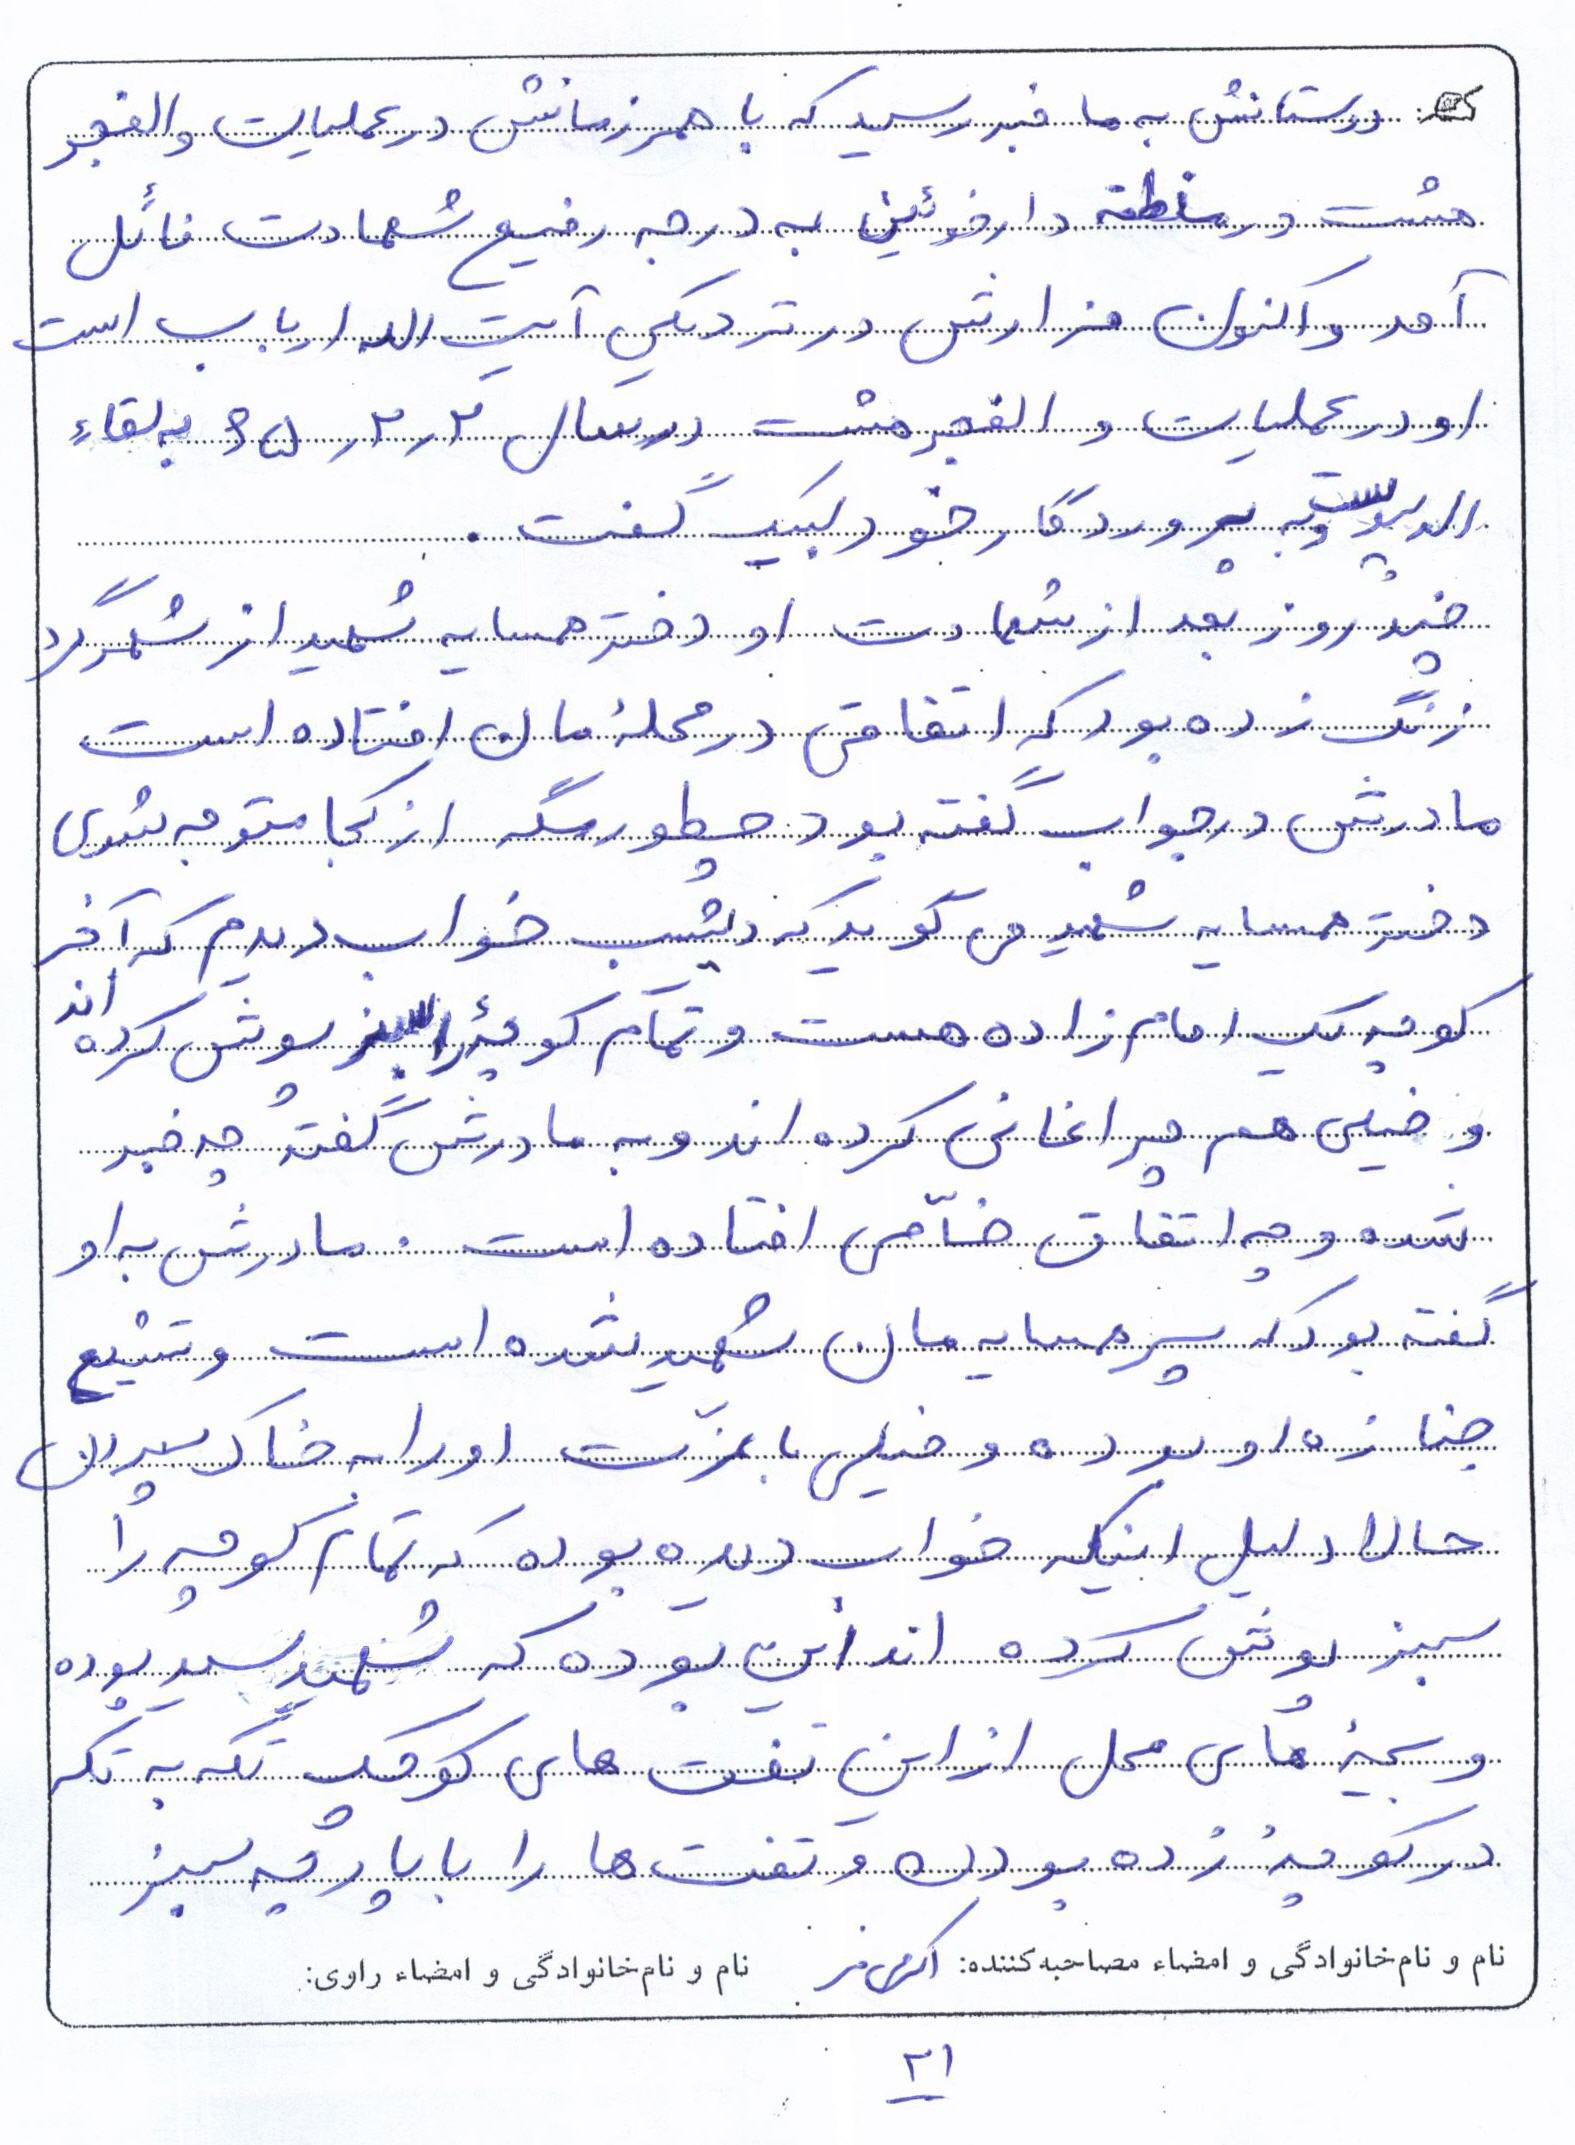 دوستانش به ما خبر رسید که با همرزمانش در عملیات والفجر
هشت در منطقه دارخوئین به درجه رفیع شهادت نائل
آمد و اکنون مزارش در نزدیکی آیت الله ارباب است
او در عملیات والفجر هشت در سال ۲ر۲ر۶۵ به لقاءِ
الله پیوست و به پروردگار خود لبیک گفت .
چند روز بعد از شهادت او دختر همسایه شهید از شهرکرد
زنگ زده بود که اتفاقی در محلهٔ مان افتاده است
مادرش در جواب گفته بود چطور مگه از کجا متوجه شدی
دختر همسایه شهید می گوید که دیشب خواب دیدم که آخر
کوچه یک امام زاده هست و تمام کوچهٔ را سبز پوش کرده اند
و خیلی هم چراغانی کرده اند و به مادرش گفته چه خبر
شده و چه اتفاق خاصّی افتاده است . مادرش به او
گفته بود که پسر همسایه مان شهید شده است و تشییع
جنازه او بوده و خیلی با عزّت او را به خاک سپردن
حالا دلیل اینکه خواب دیده بوده که تمام کوچه را
سبز پوش کرده اند این بوده که شهید سید بوده
و بچهٔ های محل از این نفت های کوچک تکه به تکه
در کوچهٔ زده بودن و نفت ها را با پارچه سبز
نام و نام‌خانوادگی و امضاء مصاحبه‌کننده: نام و نام‌خانوادگی و امضاء راوی:
۲۱